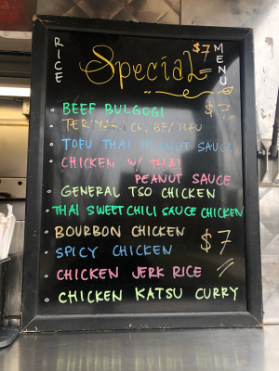 RICE
Special
$7
MENU
BEEF BULGOGI
TOFU THAI PEANUT SAUCE
CHICKEN W/ THAI
PEANUT SAUCE
GENERAL TSO CHICKEN
THAI SWEET CHILI SAUCE CHICKEN
BOURBON CHICKEN
$7
SPICY CHICKEN
CHICKEN JERK RICE
CHICKEN KATSU CURRY